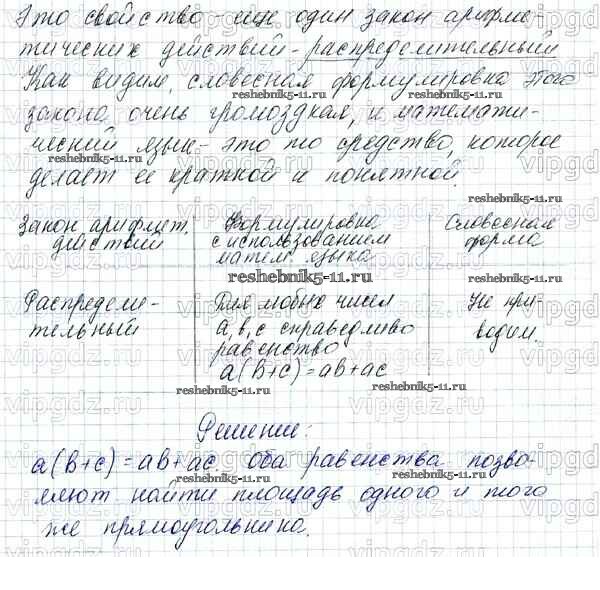 Это свойство - еще один закон арифме-
тических действий - распределительный
Как видим, словесная формулировка этого
закона очень громоздкая, и математи-
ческий язык - это то средство, которое
делает ее краткой и понятной.
Закон арифмет. действий
Формулировка с использованием матем. языка
Словесная форма
Распредели-
тельный
Для любых чисел
a, b, c справедливо
равенство
a(b+c)=ab+ac
Не при-
водим.
Решение:
a(b+c)=ab+ac оба равенства позво-
ляют найти площадь одного и того
же прямоугольника.
reshebnik5-11.ru
vipgdz.ru